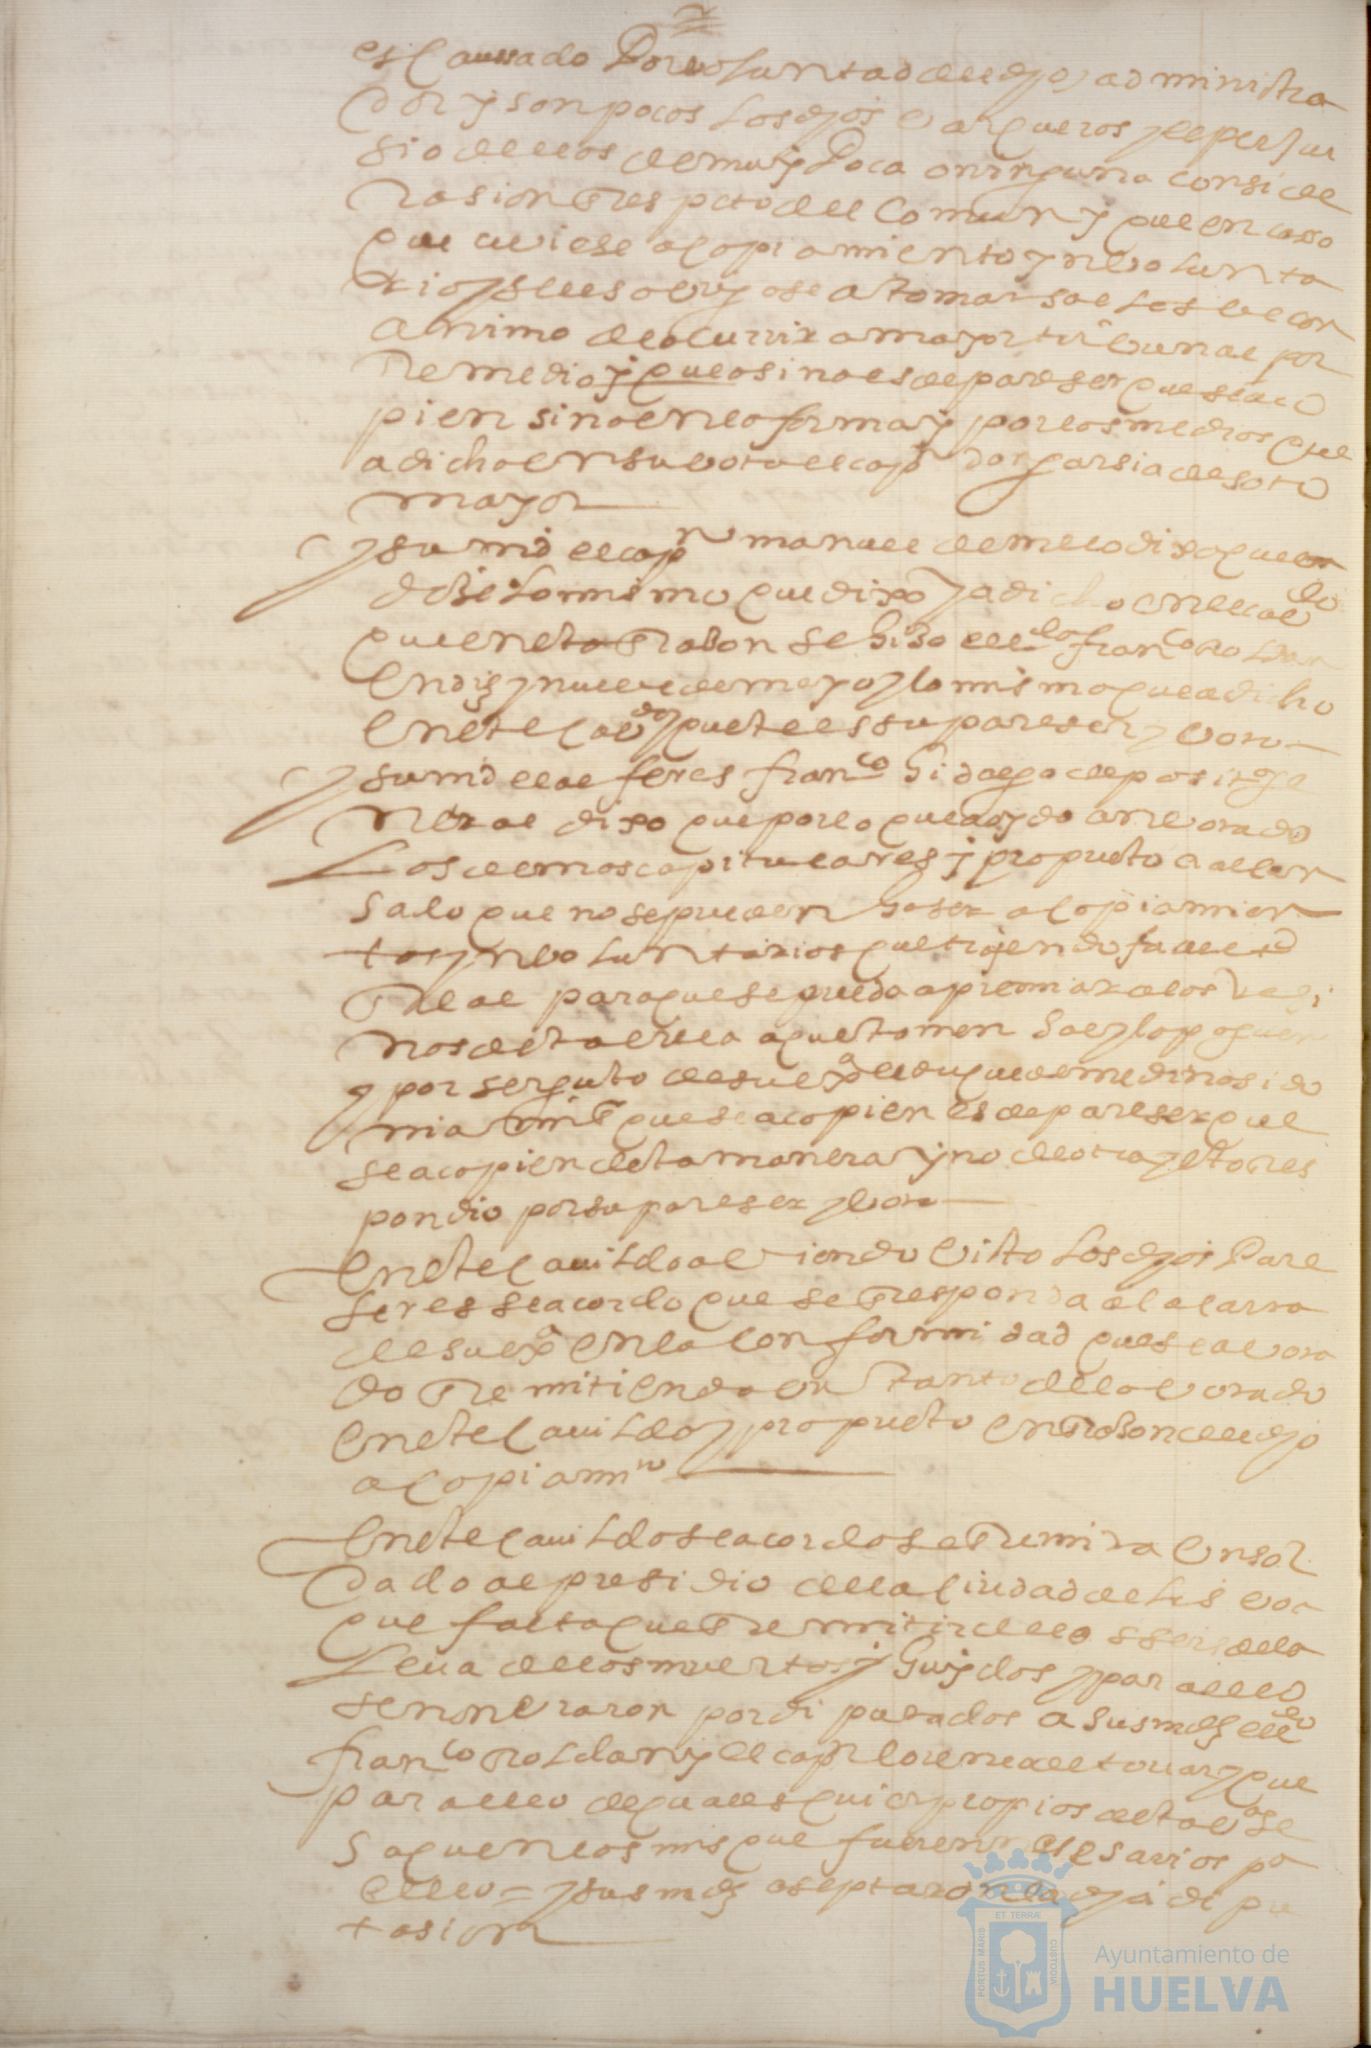 es Caussado Por voluntad del dho administra
dor y son pocos los dhos barqueros y el perjui
sio dellos de muy Poca o ninguna conside
rasion Respeto del Comun y que en casso
que uviese acopiamiento ynbolunta
rio y se les obligose a tomar sal los
animo de ocurrir a mayor tribunal por
Remedio y que asi no es de pareser que se aco
pien sino en la forma y por los medios que
a dicho en su boto el capn don garsia de soto
mayor
y su md el capn manuel de melo dixo que en
do lo mismo que dixo y a dicho en el cavdo
que en esta Rason se hiso el ldo franco Roldan
En dies y nueve de mayo y lo mismo que a dicho
En este cavdo y que este es su pareser y boto
su md el alferes franco hidalgo depositr ge
neral dixo que por lo que aydo an botado
Los demas capitulares y propuesto a
salo que no se pueden haser acopiamien
tos ynboluntarios que trayendo sedula
Real para que se pueda apremiar a los besi
nos desta villa a que tomen sal y la paguen
y por ser gusto de su exa el duque de medinasido
nia mi sr que se acopien es de pareser que
se acopien desta manera y no de otra y esto Res
pondio por su pareser y boto
En este Cavildo aviendo visto los dhos Pare
seres se acordo que se Responda a la carta
de su exa en la conformidad que se a bota
do Remitiendo un tanto de lo botado
En este Cavildo y propuesto en Rason del dho
acopiamto
En este Cavildo se acordo se Remita Un sol
dado al presidio de la Ciudad de
que falta que Remitir de los seis de la
Leva de los muertos y huydos y para ello
se nonbraron por diputados a sus mds el ldo
franco Roldan y el capn lorenso de tovar y que
para ello de qualesquier propios desta va se
saquen los mrs que fueren nesesarios pa
ello = y sus mds aseptaron la dha dipu
tasion
PORTUS MARIS
ET TERRÆ
CUSTODIA
Ayuntamiento de
HUELVA